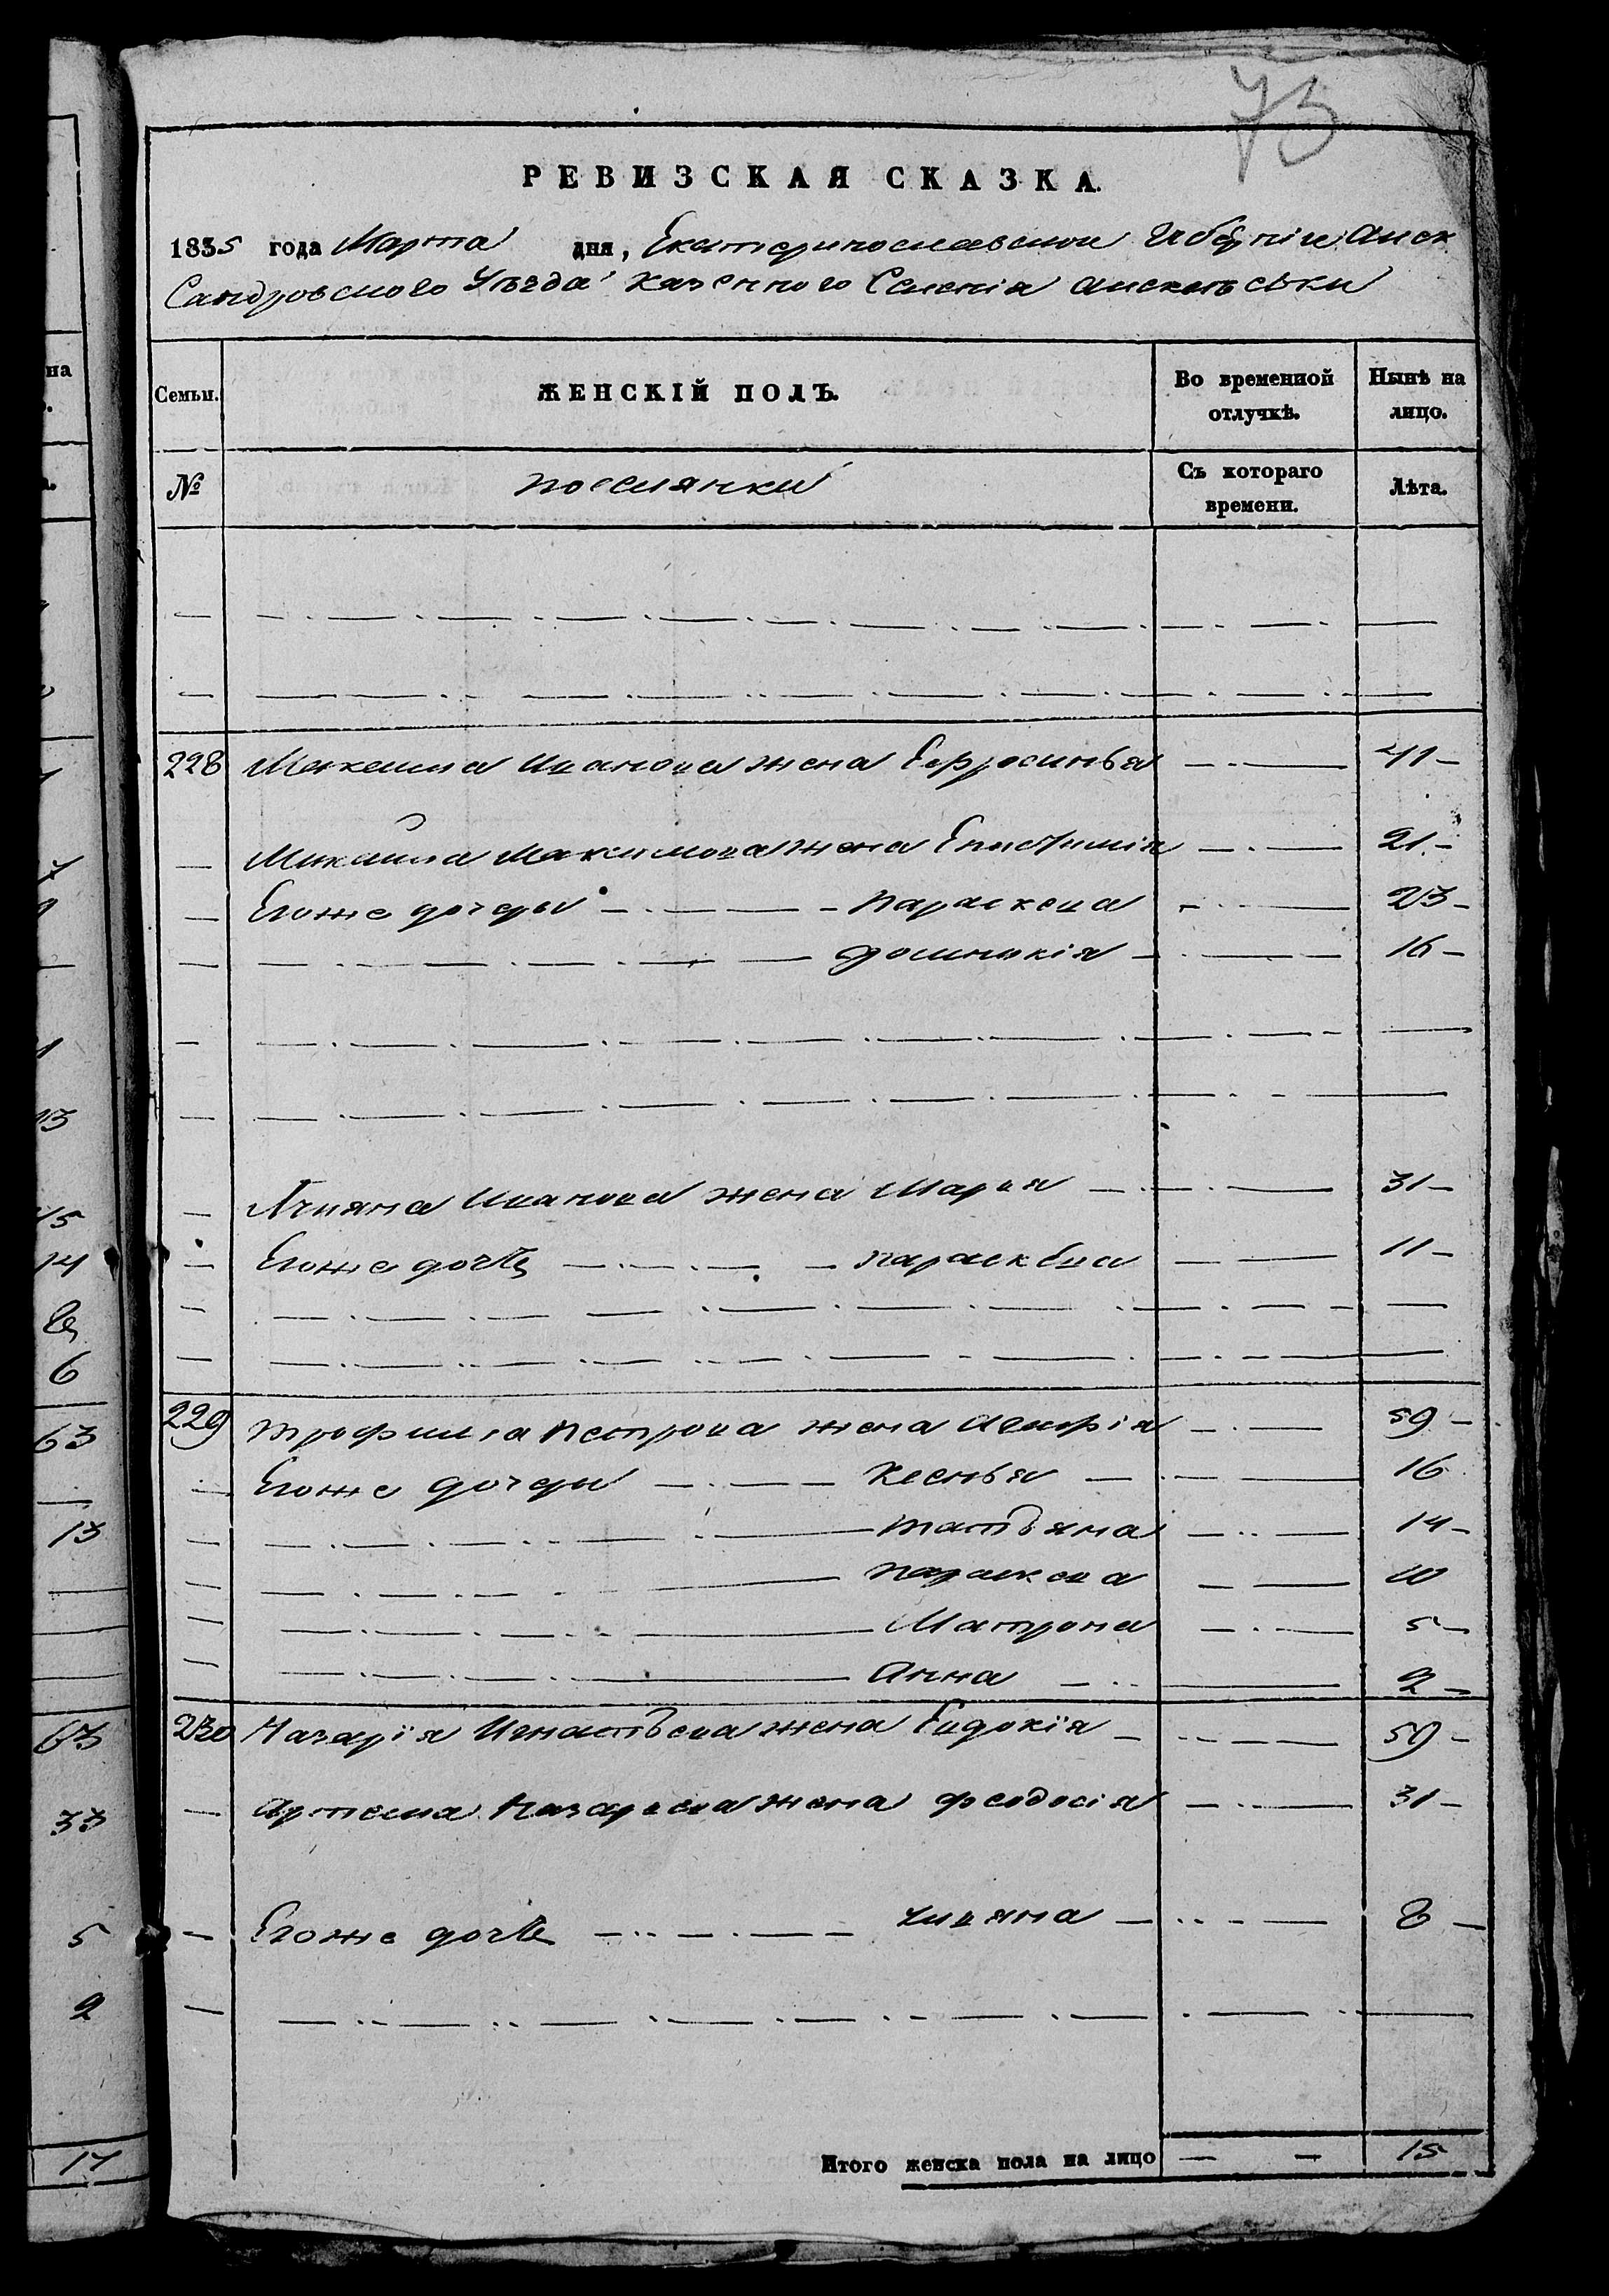 73
РЕВИЗСКАЯ СКАЗКА.
1835 года Марта дня, Екатеринославской Губерніи Алек
Сандровского Уезда Казенного Селенія
Семьи. ЖЕНСКІЙ ПОЛЪ. Во временной отлучкѣ. Нынѣ на лицо.
№ поселянки Съ котораго времени. Лѣта.
228 Максима Иванова жена Ефросинья 41
Михайла Максимова жена Епистимія 21
Егоже дочери Параскева 23
Домникія 16
Иванова жена Марья 31
Егоже дочь Параскева 11
229 Трофима Петрова жена Агафія 59
Егоже дочери Ксенья 16
Татьяна 14
Параскева 10
Матрона 5
Анна 2
230 Назарія Игнатьева жена Евдокія 59
Артема Назарьева жена Феодосія 31
Егоже дочь Ульяна 8
Итого женска пола на лицо 15
на
13
15
14
8
6
63
13
63
33
5
2
17